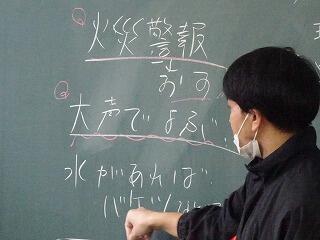 火災警報
おす
大声でよぶ
水があれば
バケツ